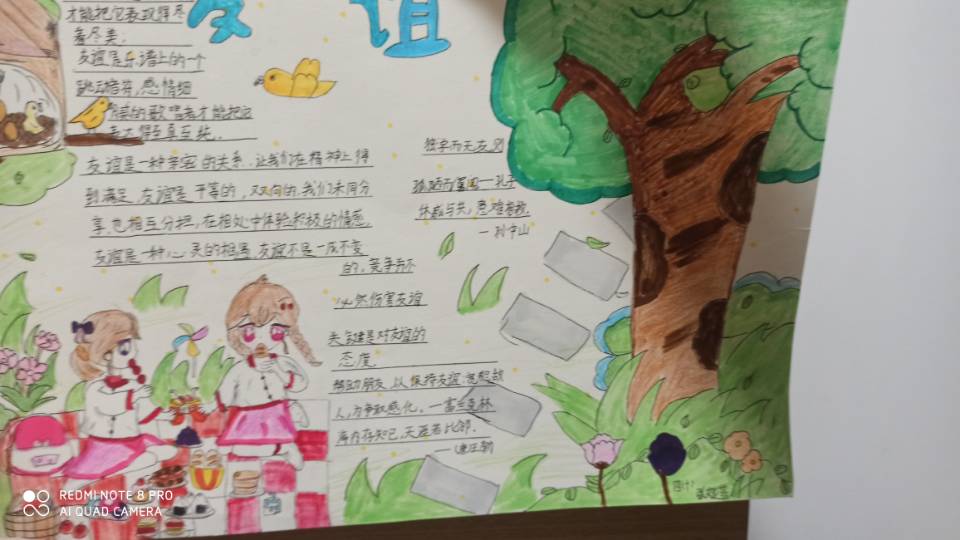 才能把它表现得尽
善尽美.
友谊
友谊是乐谱上的一个
跳动音符,感情细
腻的歌唱者才能把这
友谊是一种亲密的关系,让我们在精神上得
到满足,友谊是平等的,双向的.我们共同分
享,也相互分担,在相处中体验积极的情感,
友谊是一种心灵的相遇,友谊不是一成不变
的,竞争并不
必然伤害友谊
关键是对友谊的
态度
帮助朋友,以保持友谊;宽恕敌
人,为争取感化。—富兰克林
海内存知己,天涯若比邻.
独学而无友,则
孤陋而寡闻—孔子
休戚与共,患难相救.
—孙中山
REDMI NOTE 8 PRO
AI QUAD CAMERA